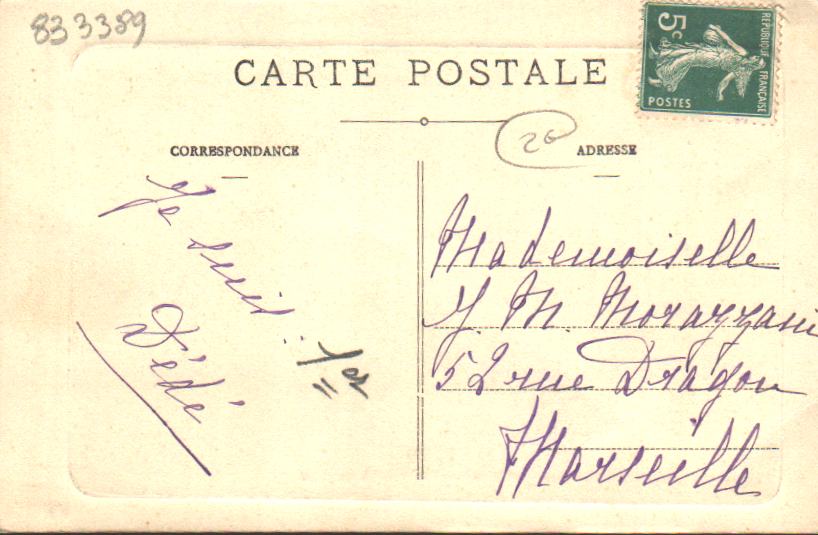 83 3389
CARTE POSTALE
5c
RÉPUBLIQUE FRANÇAISE
POSTES
20
CORRESPONDANCE
ADRESSE
Je suis : 1er
Dédé
Mademoiselle
J. M. Morazzani
52 rue Dragon
Marseille